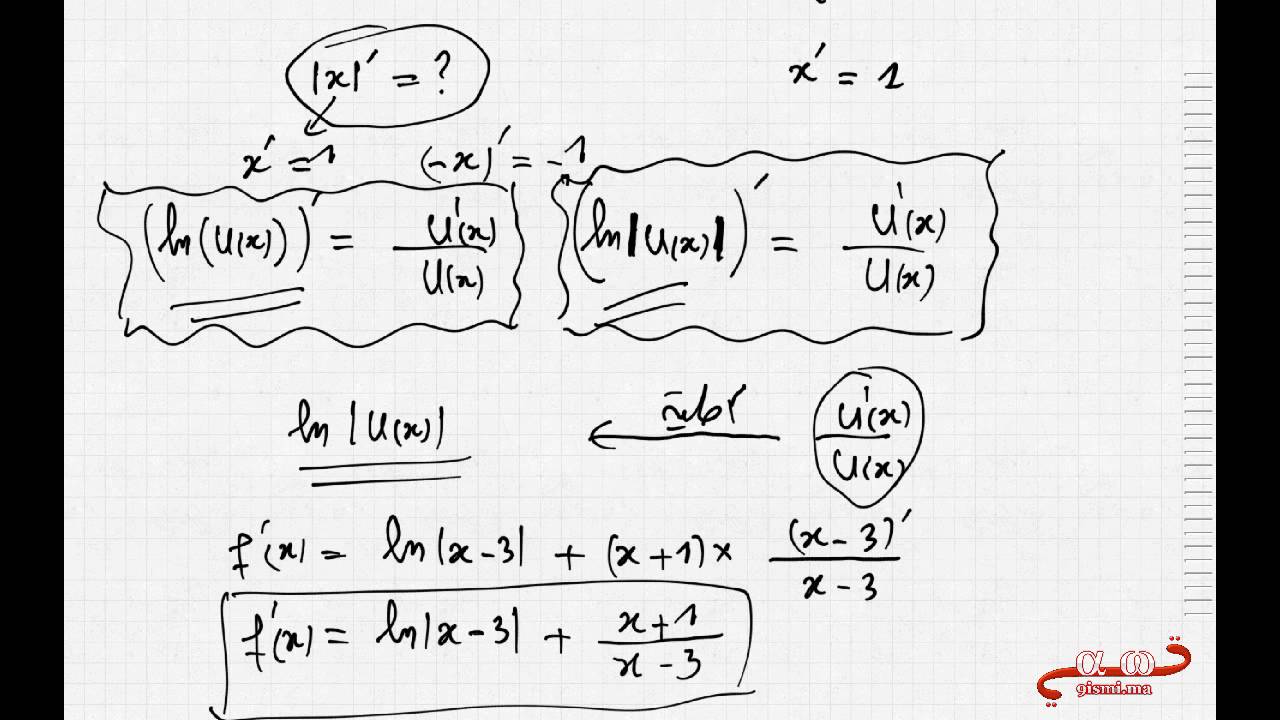 |x|' = ?
x' = 1
x' = 1 (-x)' = -1
(ln(U(x)))' = U'(x)/U(x) (ln|U(x)|)' = U'(x)/U(x)
ln |U(x)| ← U'(x)/U(x)
f'(x) = ln|x-3| + (x+1) × (x-3)'/x-3
f'(x) = ln|x-3| + x+1/x-3
α ω
gismi.ma